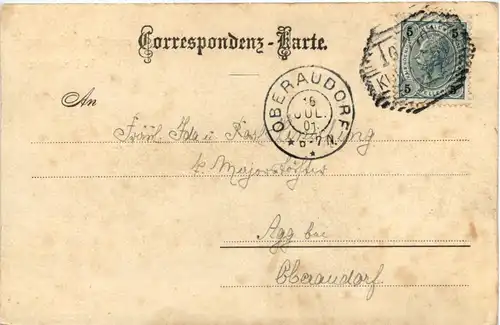 Correspondenz-Karte.
5 5
5 5
An
OBERAUDORF.
16
JUL.
01
6-7N.
Fräul. Ida u
k. Majorstöchter
Agg bei
Oberaudorf